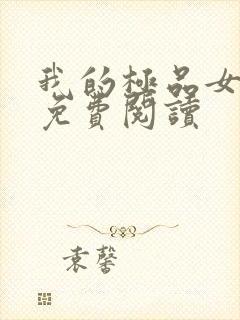 我的極品女
免費閱讀
袁馨